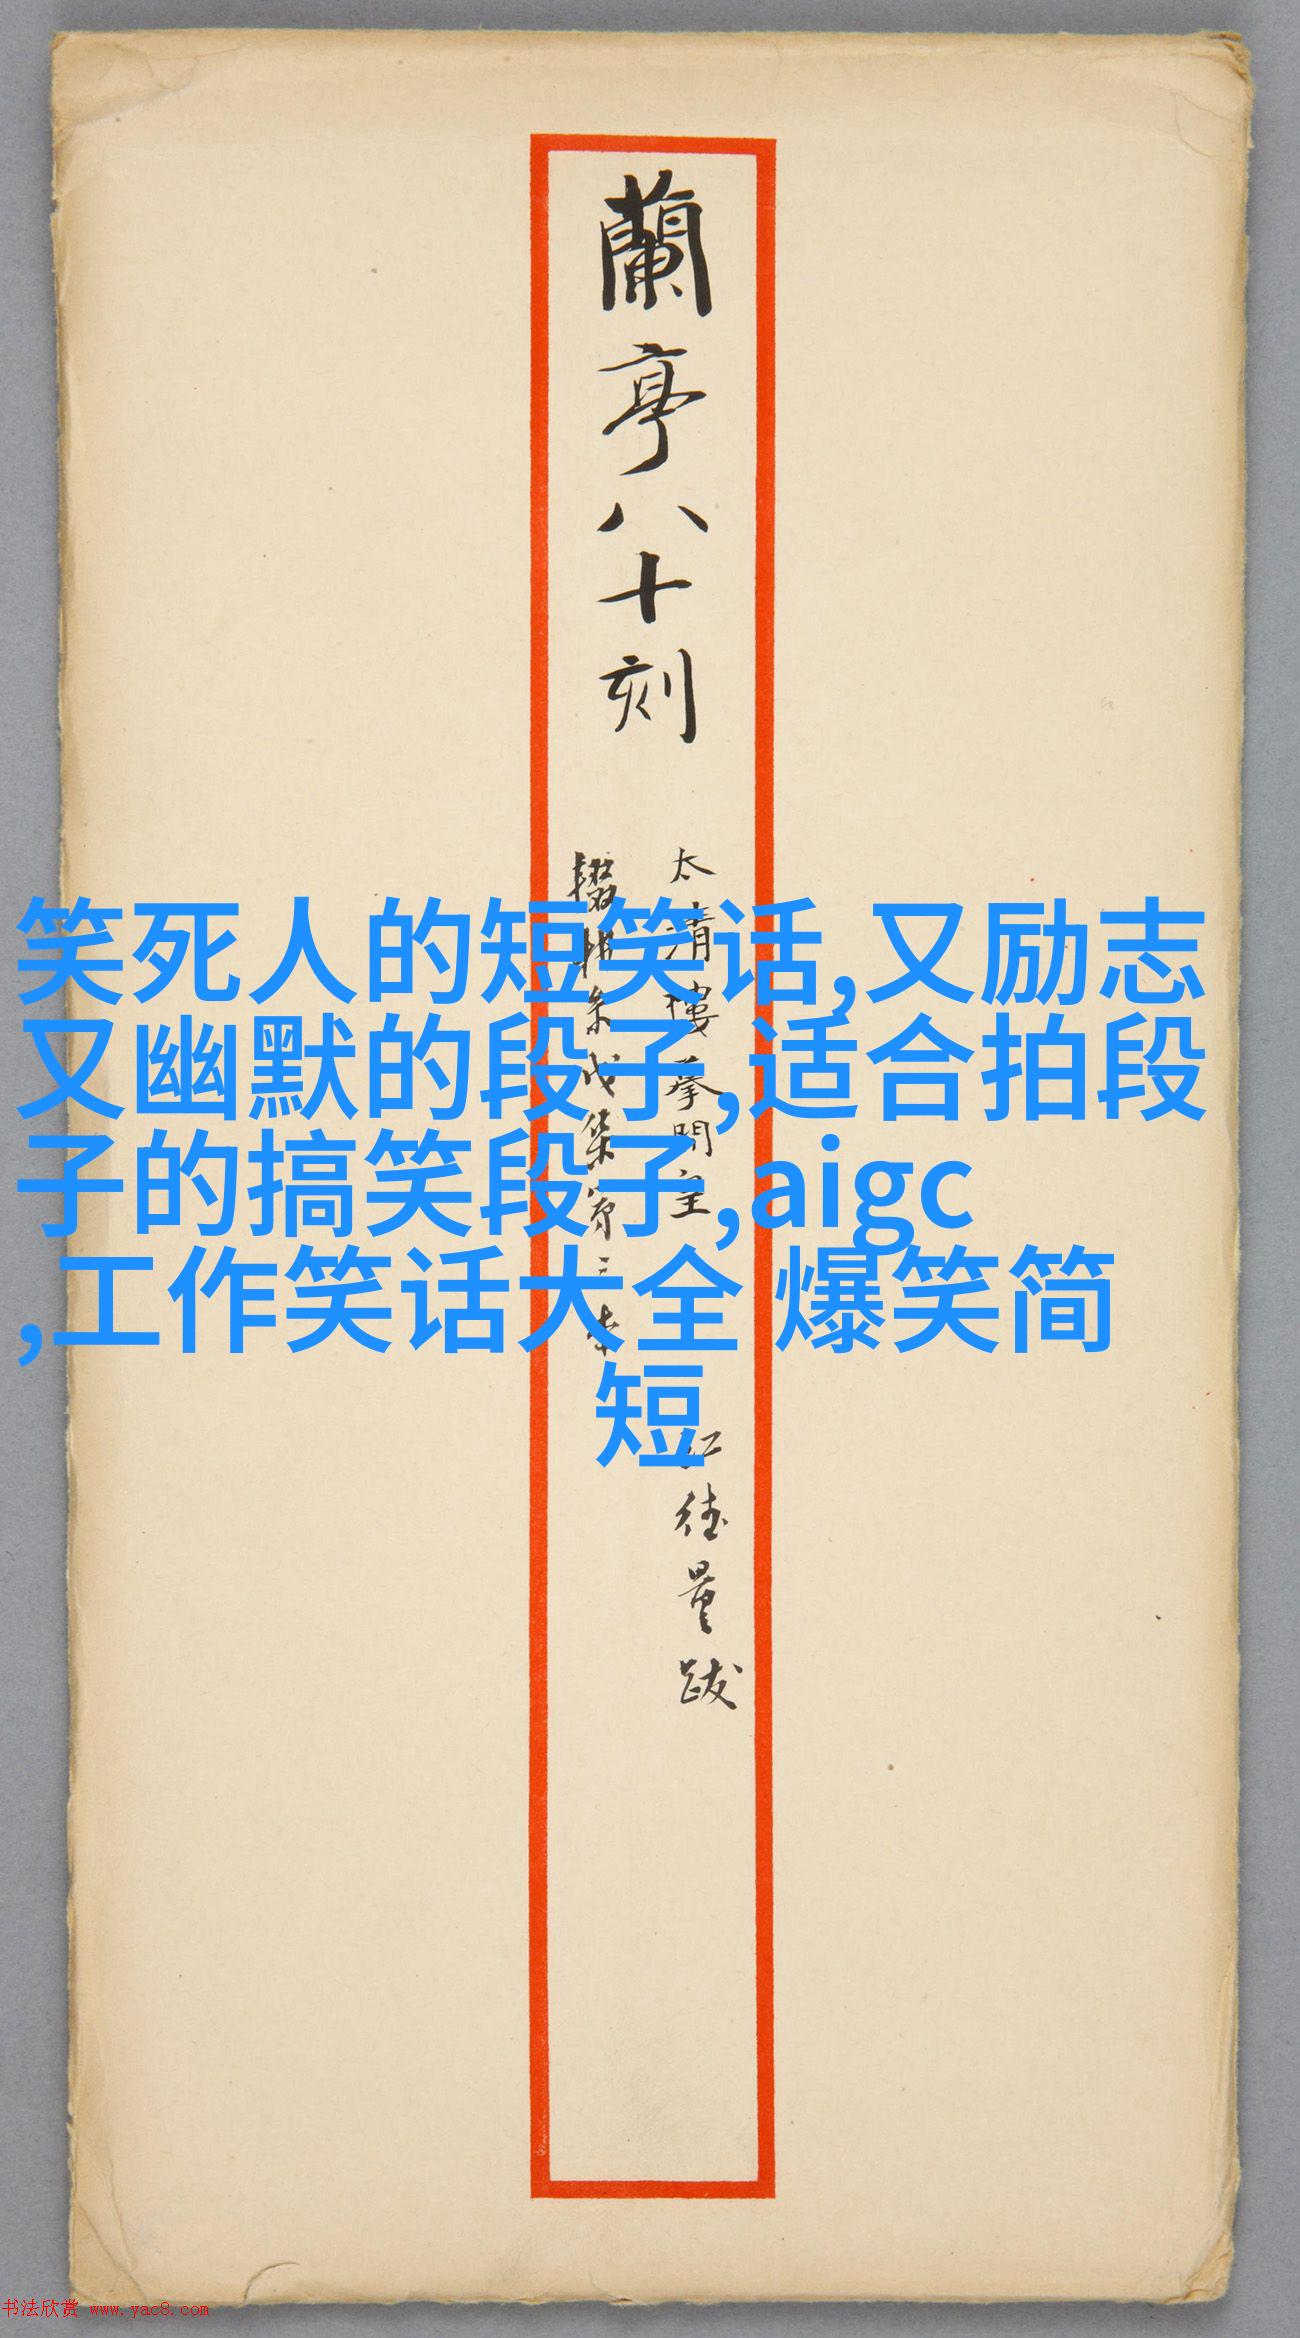 蘭亭八十刻
太清樓摹開皇
紅德量跋
笑死人的短笑话,又励志
又幽默的段子,适合拍段
子的搞笑段子,aigc
,工作笑话大全 爆笑简
短
书法欣赏 www.yac8.com